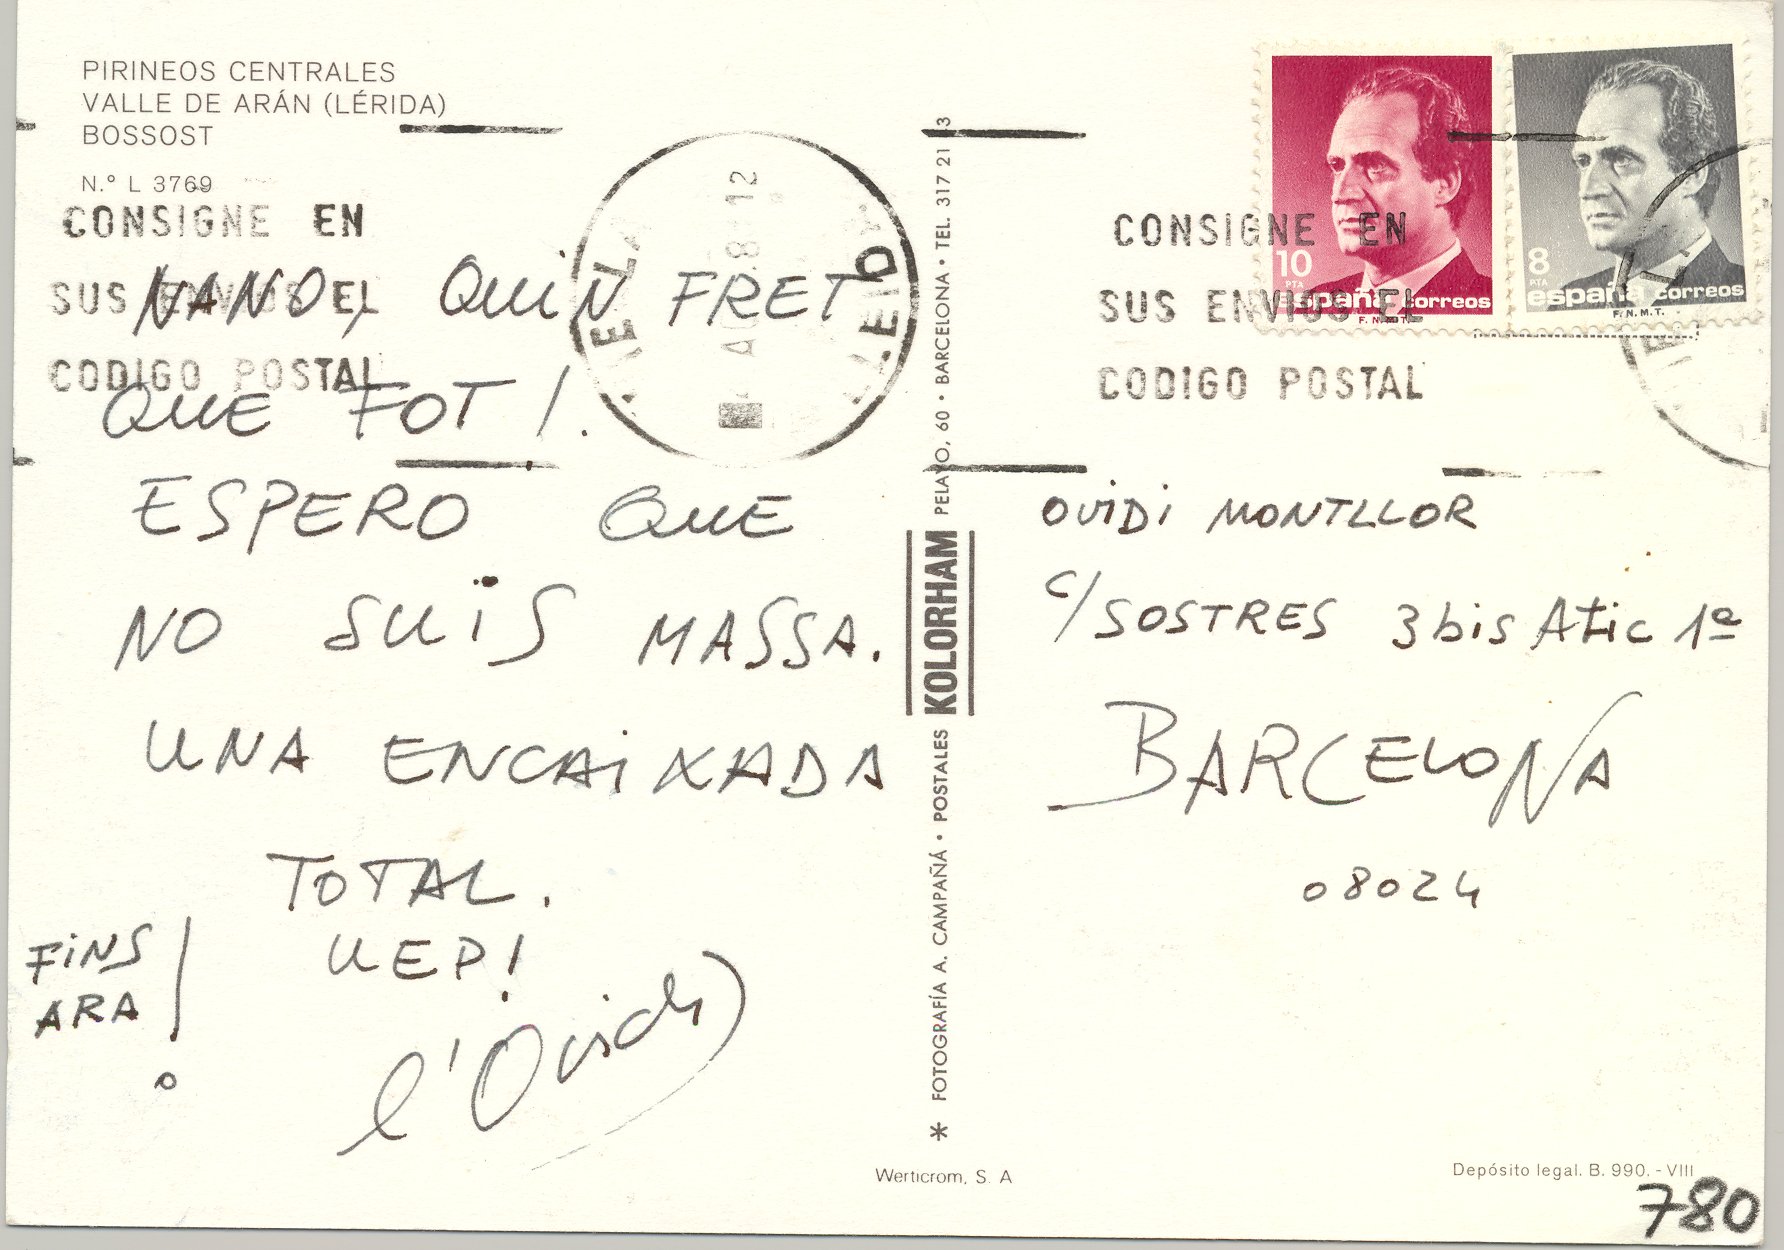 PIRINEOS CENTRALES
VALLE DE ARÁN (LÉRIDA)
BOSSOST
N.° L 3769
CONSIGNE EN
SUS ENVIOS EL
CODIGO POSTAL
12
NANO, QUIN FRET
QUE FOT!.
ESPERO QUE
NO SUIS MASSA.
UNA ENCAIXADA
TOTAL.
UEP!
FINS
ARA!
l'Ovidi
* FOTOGRAFÍA A. CAMPAÑÁ • POSTALES KOLORHAM PELAYO, 60 • BARCELONA • TEL. 317 21 3
Werticrom, S. A
10
PTA
españa correos
F.N.M.T.
8
PTA
españa correos
F.N.M.T.
CONSIGNE EN
SUS ENVIOS EL
CODIGO POSTAL
OVIDI MONTLLOR
C/SOSTRES 3 bis Atic 1ª
BARCELONA
08024
Depósito legal. B. 990. - VIII
780